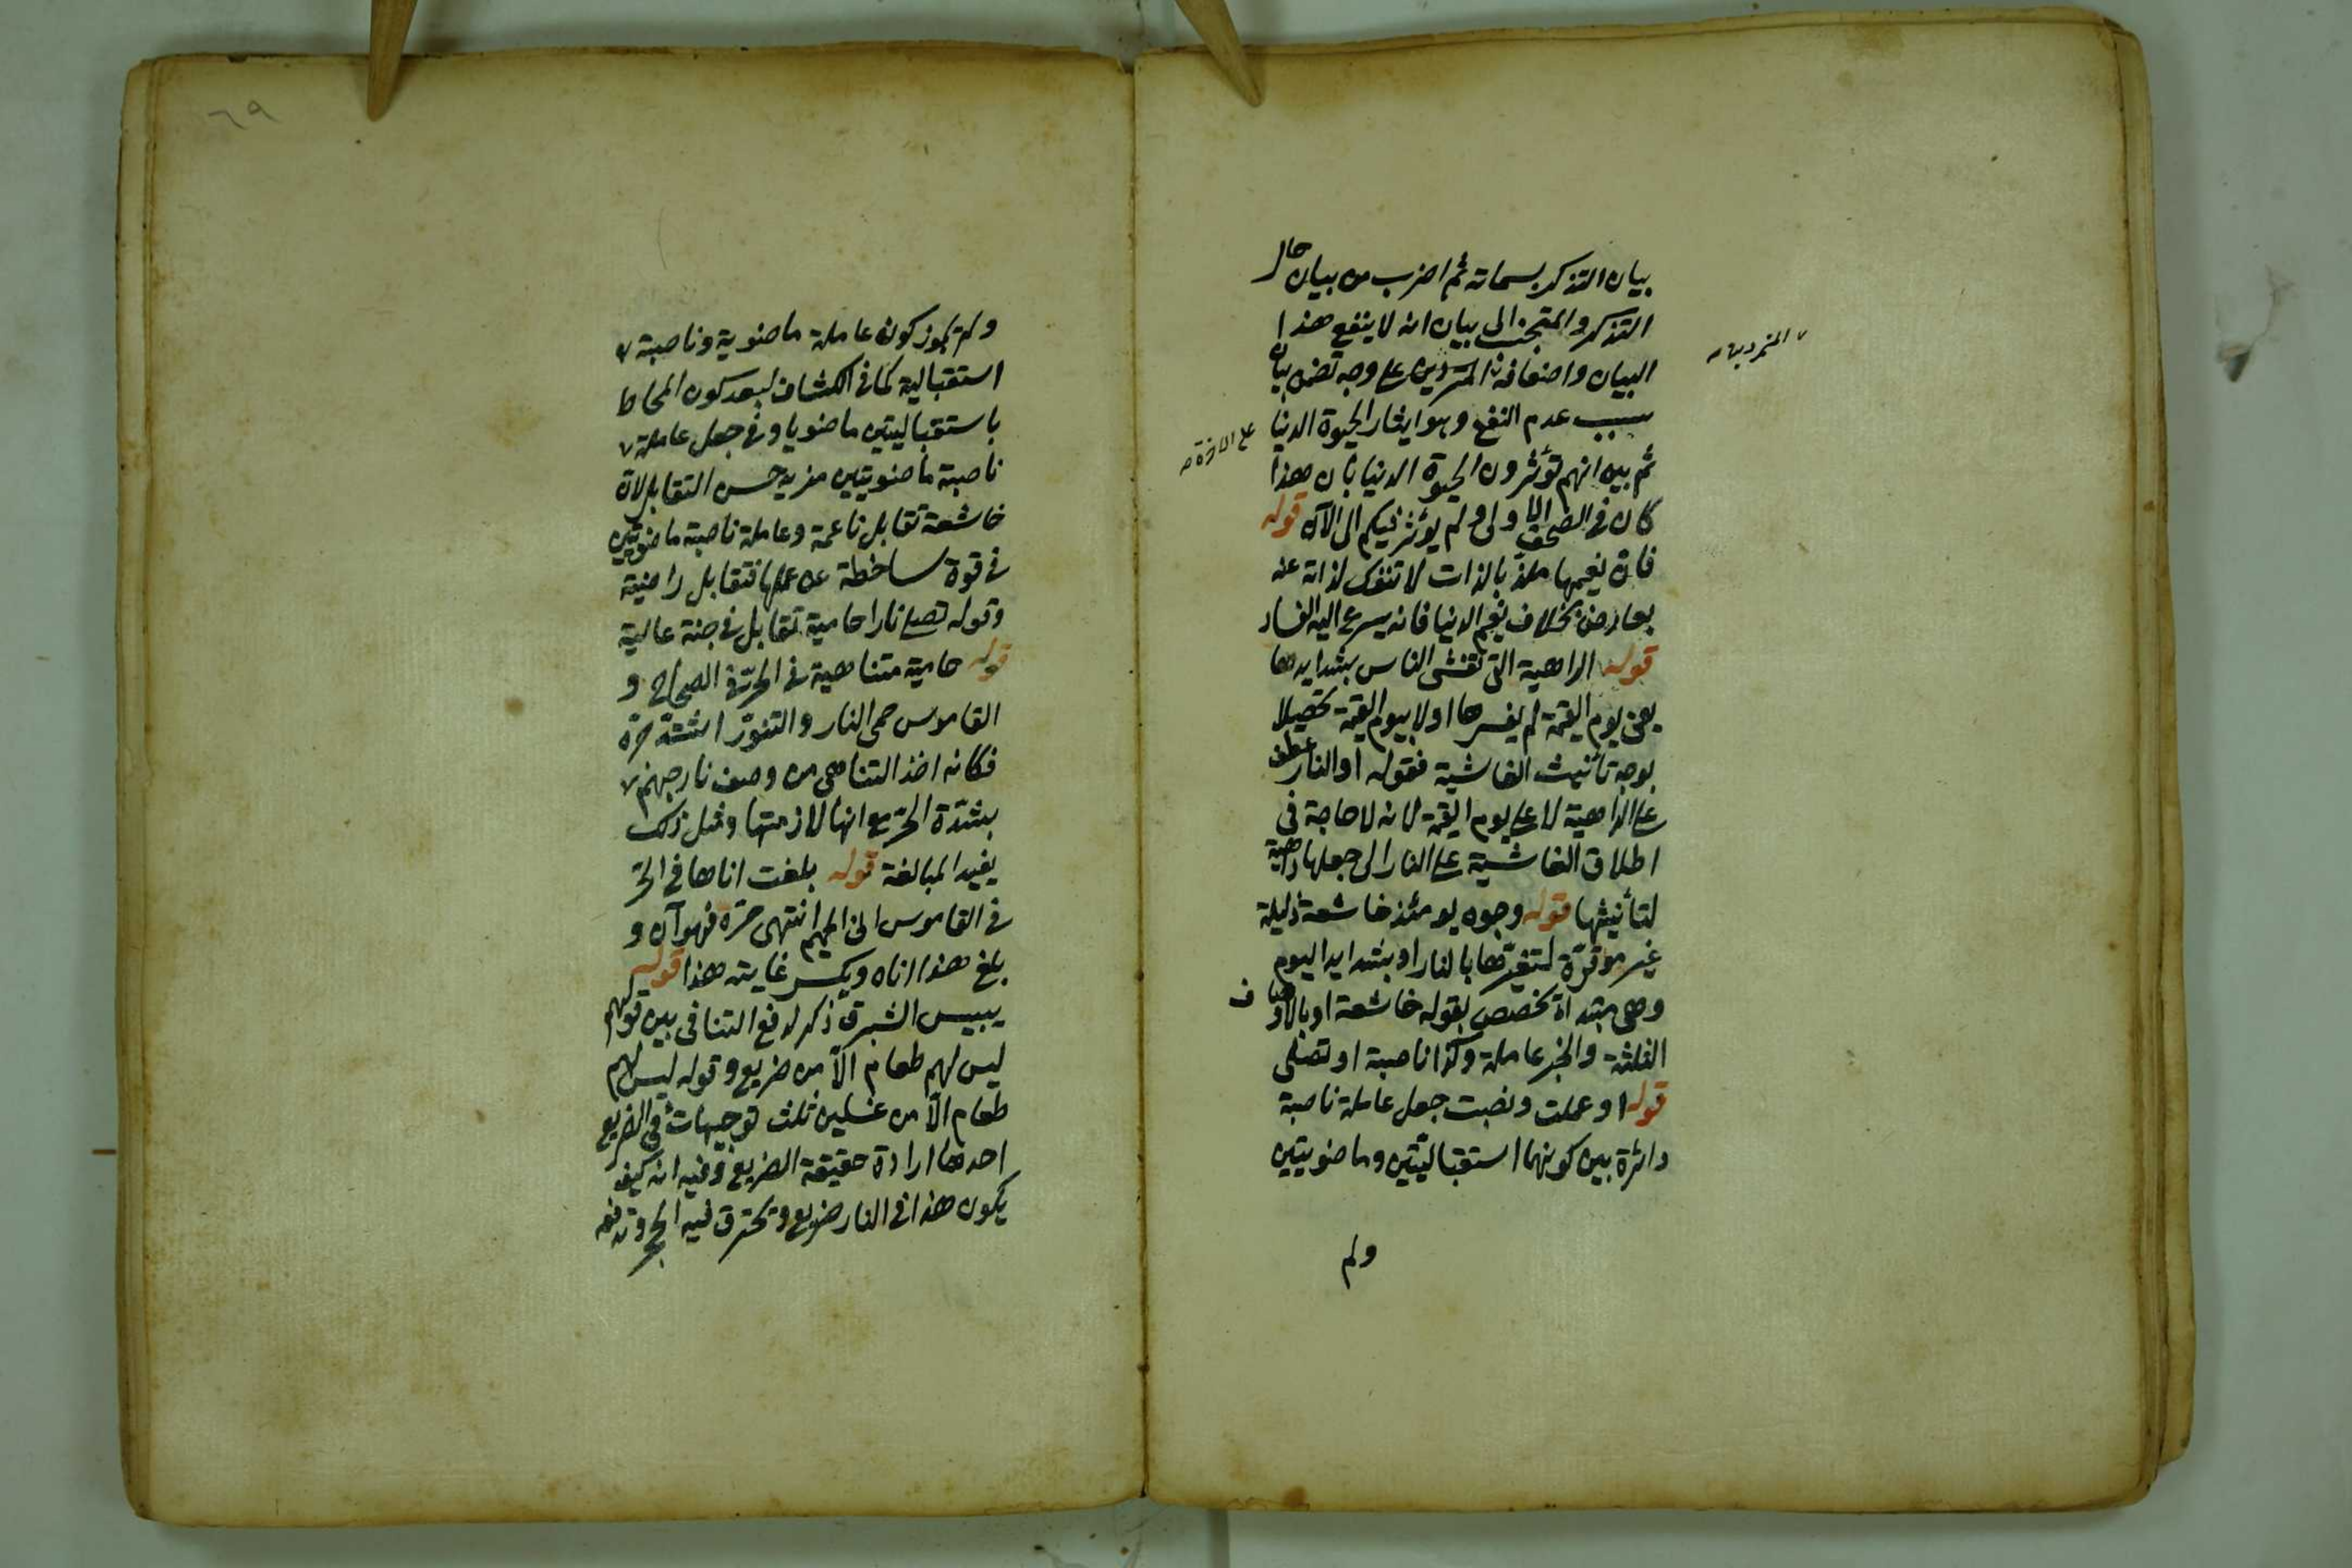 بيان التذكر بسماته ثم اضرب من بيان حال
التذكر والمتجنب الى بيان انه لا ينفع هذا
البيان واضعافه المتمردين على وجه تضمن بيان
المتمردين
سبب عدم النفع وهو ايثار الحيوة الدنيا
على الاخرة
ثم بين انهم تؤثرون الحيوة الدنيا بان هذا
كان في الصحف الاولى ولم يؤثر فيكم الى الآن قوله
فان نعيمها ملذ بالذات لا تنفك لذاته عنه
بعارض بخلاف نعيم الدنيا فانه يسرع اليه الفساد
قوله الداهية التي تغشى الناس بشدايدها
يعني يوم القيمة لم يفسرها اولا بيوم القيمة تحصيلا
لوجه تأنيث الغاشية فقوله او النار عطف
على الداهية لا على يوم القيمة لانه لا حاجة في
اطلاق الغاشية على النار الى جعلها داهية
لتأنيثها قوله وجوه يومئذ خاشعة ذليلة
غير موقرة لتغيرها بالنار او بشدايد اليوم
وهي مبتدأة تخصص بقوله خاشعة او بالاوصاف
الثلثة والخبر عاملة وكذا ناصبة او تصلى
قوله او عملت ونصبت جعل عاملة ناصبة
دائرة بين كونهما استقباليتين وماضويتين
ولم
٦٩
ولم يجوز كون عاملة ماضوية وناصبة
استقبالية كما في الكشاف لبعد كون المحاط
باستقباليتين ماضويا وفي جعل عاملة
ناصبة ماضويتين مزيد حسن التقابل لان
خاشعة تقابل ناعمة وعاملة ناصبة ماضويتين
في قوة ساخطة عن عملها فتقابل راضية
وقوله تصلى نارا حامية تقابل في جنة عالية
قوله حامية متناهية في الحر في الصحاح و
القاموس حمى النار والتنور اشتد حره
فكانه اخذ التناهي من وصف نار جهنم
بشدة الحر مع انها لازمتها ومثل ذلك
يفيد المبالغة قوله بلغت اناها في الحر
في القاموس انى الحميم انتهى حره فهو آن و
بلغ هذا اناه ويكسر غايته هذا قوله
يبيس الشبرق ذكر لدفع التنافي بين قولهم
ليس لهم طعام الا من ضريع وقوله ليس لهم
طعام الا من غسلين ثلث توجيهات في الضريع
احدها ارادة حقيقة الضريع وفيه انه كيف
يكون هذا في النار ضريع وتحترق فيه الحجر